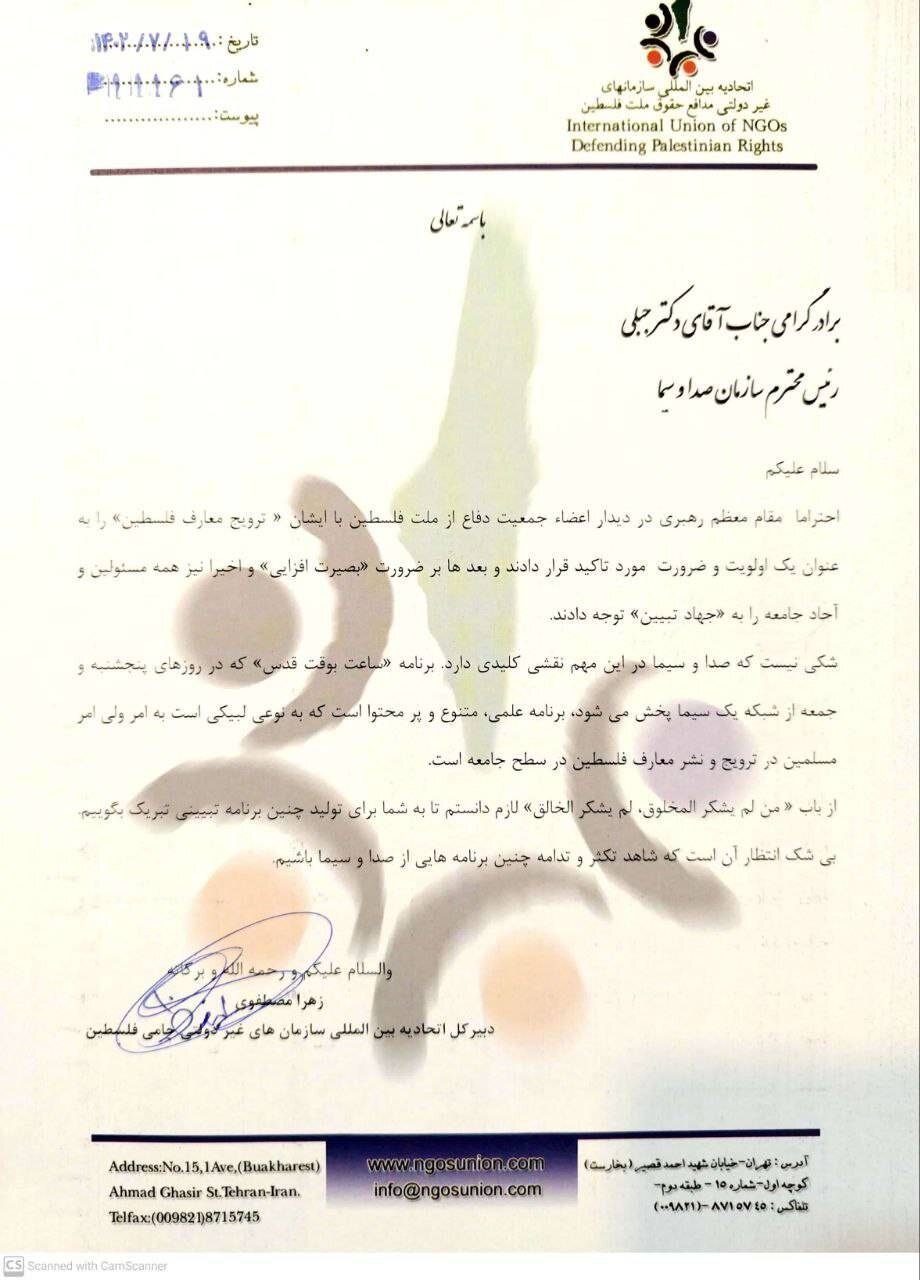 تاریخ: ۱۴۰۲/۷/۱۹
شماره:
پیوست:
اتحادیه بین المللی سازمانهای
غیر دولتی مدافع حقوق ملت فلسطین
International Union of NGOs
Defending Palestinian Rights
باسمه تعالی
برادر گرامی جناب آقای دکتر جبلی
رئیس محترم سازمان صدا و سیما
سلام علیکم
احتراما مقام معظم رهبری در دیدار اعضاء جمعیت دفاع از ملت فلسطین با ایشان « ترویج معارف فلسطین» را به
عنوان یک اولویت و ضرورت مورد تاکید قرار دادند و بعد ها بر ضرورت «بصیرت افزایی» و اخیرا نیز همه مسئولین و
آحاد جامعه را به «جهاد تبیین» توجه دادند.
شکی نیست که صدا و سیما در این مهم نقشی کلیدی دارد. برنامه «ساعت بوقت قدس» که در روزهای پنجشنبه و
جمعه از شبکه یک سیما پخش می شود، برنامه علمی، متنوع و پر محتوا است که به نوعی لبیکی است به امر ولی امر
مسلمین در ترویج و نشر معارف فلسطین در سطح جامعه است.
از باب « من لم یشکر المخلوق، لم یشکر الخالق» لازم دانستم تا به شما برای تولید چنین برنامه تبیینی تبریک بگوییم.
بی شک انتظار آن است که شاهد تکثر و تدامه چنین برنامه هایی از صدا و سیما باشیم.
والسلام علیکم و رحمه الله و برکاته
زهرا مصطفوی
دبیرکل اتحادیه بین المللی سازمان های غیر دولتی حامی فلسطین
Address:No.15,1Ave,(Buakharest)
Ahmad Ghasir St.Tehran-Iran.
Telfax:(009821)8715745
www.ngosunion.com
info@ngosunion.com
آدرس : تهران-خیابان شهید احمد قصیر (بخارست)
کوچه اول-شماره ۱۵ - طبقه دوم-
تلفاکس : ۸۷۱۵۷۴۵ -(۰۰۹۸۲۱)
CS Scanned with CamScanner